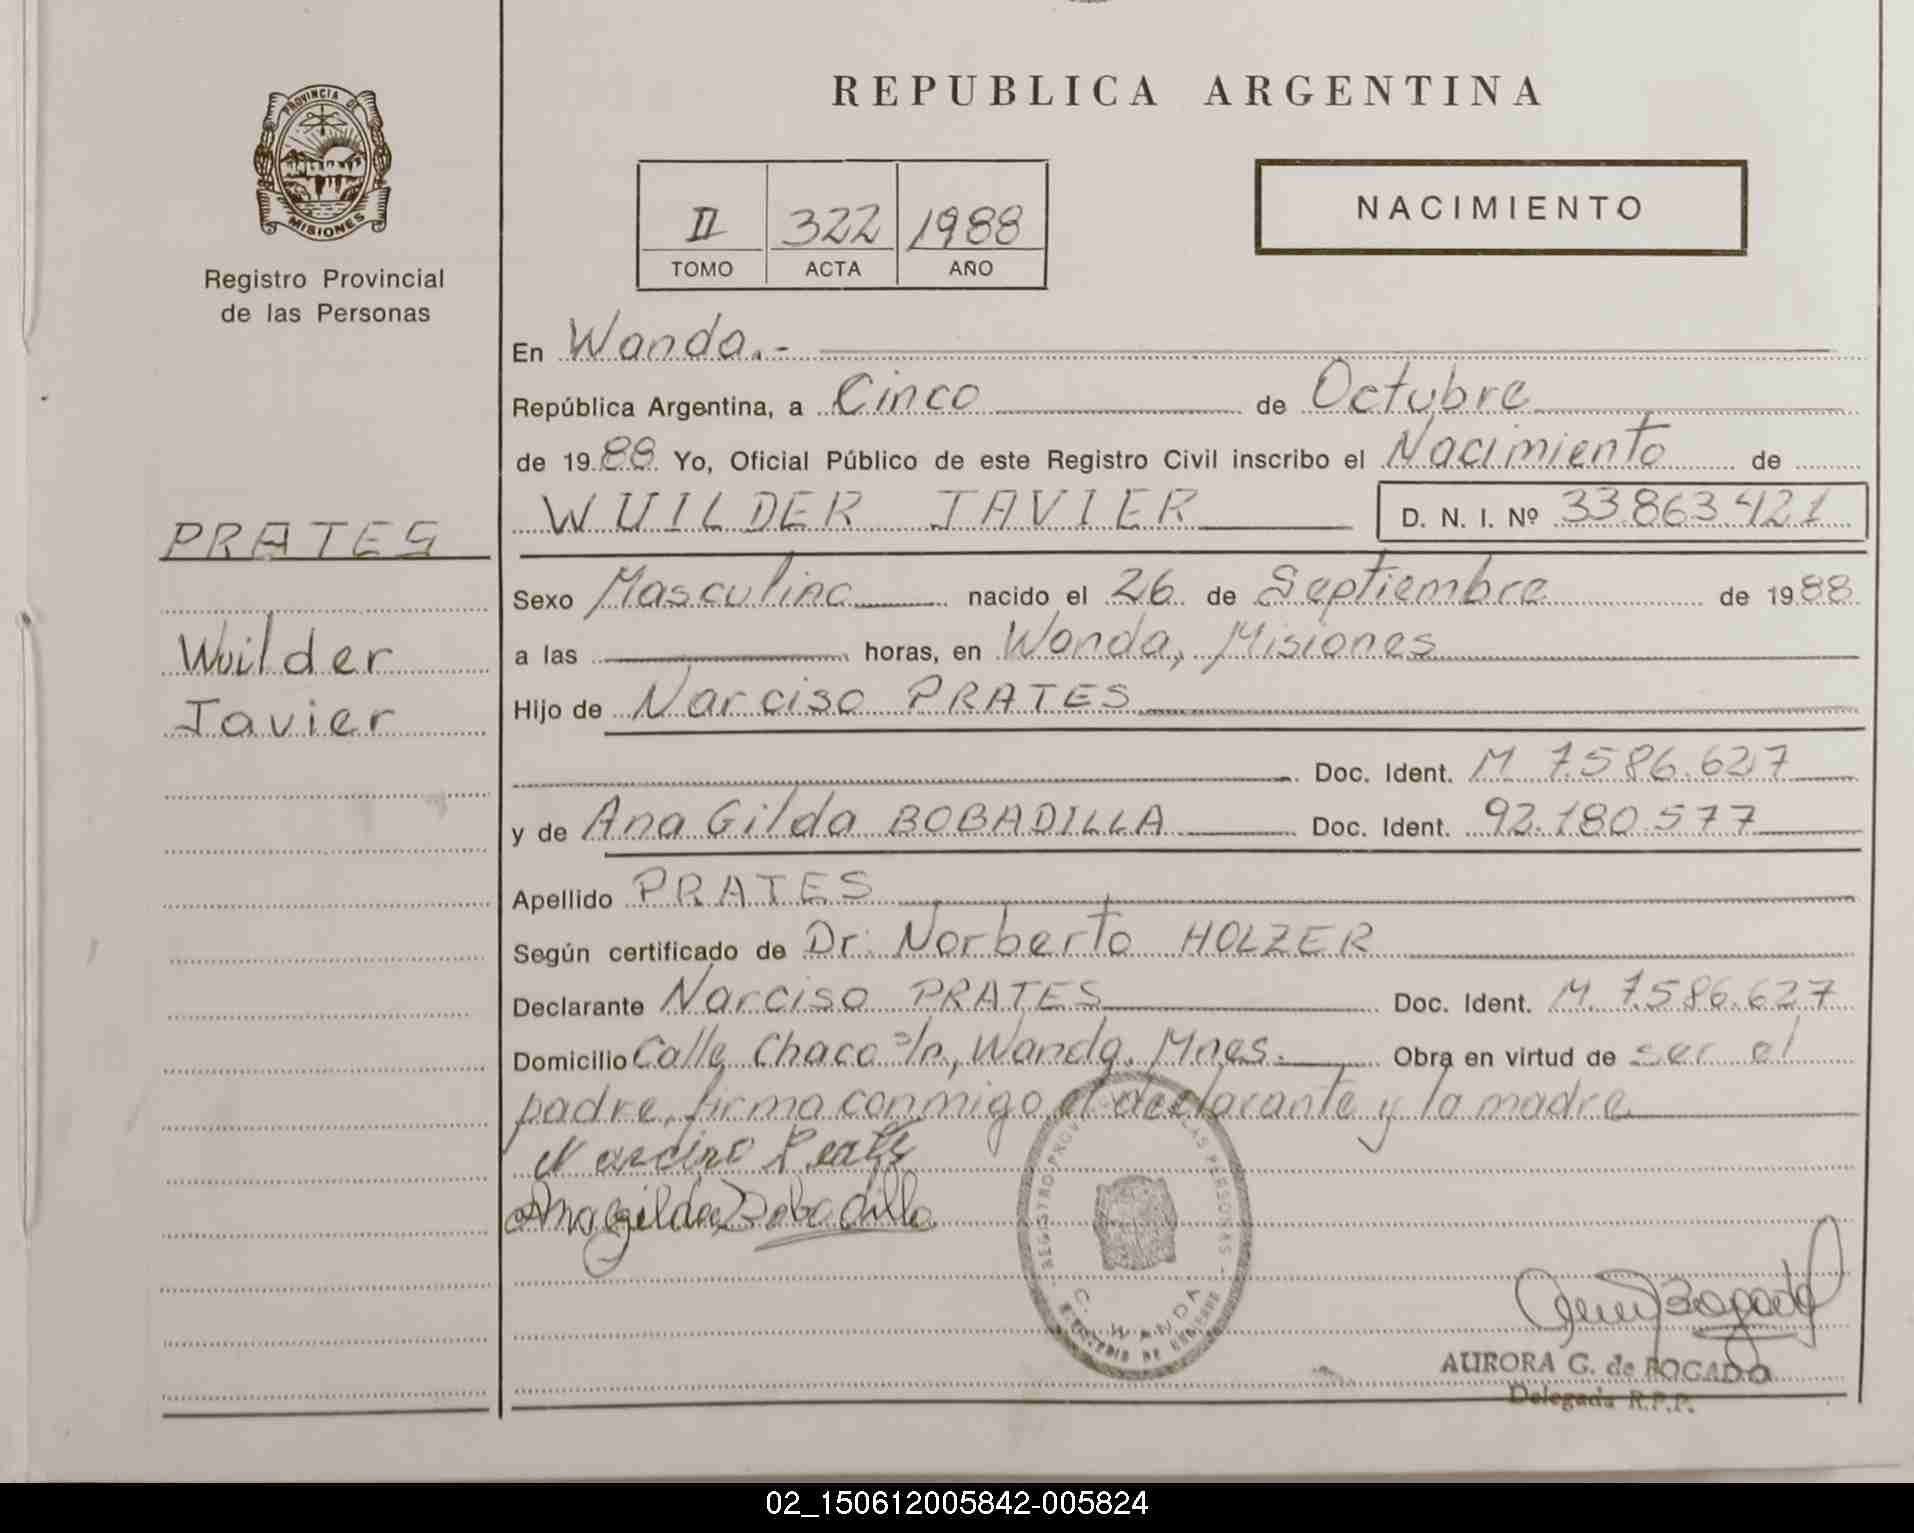 PROVINCIA DE
MISIONES
Registro Provincial
de las Personas
PRATES
Wuilder
Javier
REPUBLICA ARGENTINA
II 322 1988
TOMO ACTA AÑO
NACIMIENTO
En Wanda.-
República Argentina, a Cinco de Octubre
de 1988 Yo, Oficial Público de este Registro Civil inscribo el Nacimiento de
WUILDER JAVIER D. N. I. Nº 33.863.421
Sexo Masculino nacido el 26 de Septiembre de 1988
a las horas, en Wanda, Misiones
Hijo de Narciso PRATES
Doc. Ident. M 7.586.627
y de Ana Gilda BOBADILLA Doc. Ident. 92.180.577
Apellido PRATES
Según certificado de Dr. Norberto HOLZER
Declarante Narciso PRATES Doc. Ident. M. 7.586.627
Domicilio Calle Chaco s/n, Wanda. Mnes. Obra en virtud de ser el
padre, firma conmigo el declarante y la madre
Narciso Prates
Ana Gilda Bobadilla
REGISTRO PROV LAS PERSONAS
WANDA
MINISTERIO DE GOBIERNO
AURORA G. de BOGADO
Delegada R.P.P.
02_150612005842-005824